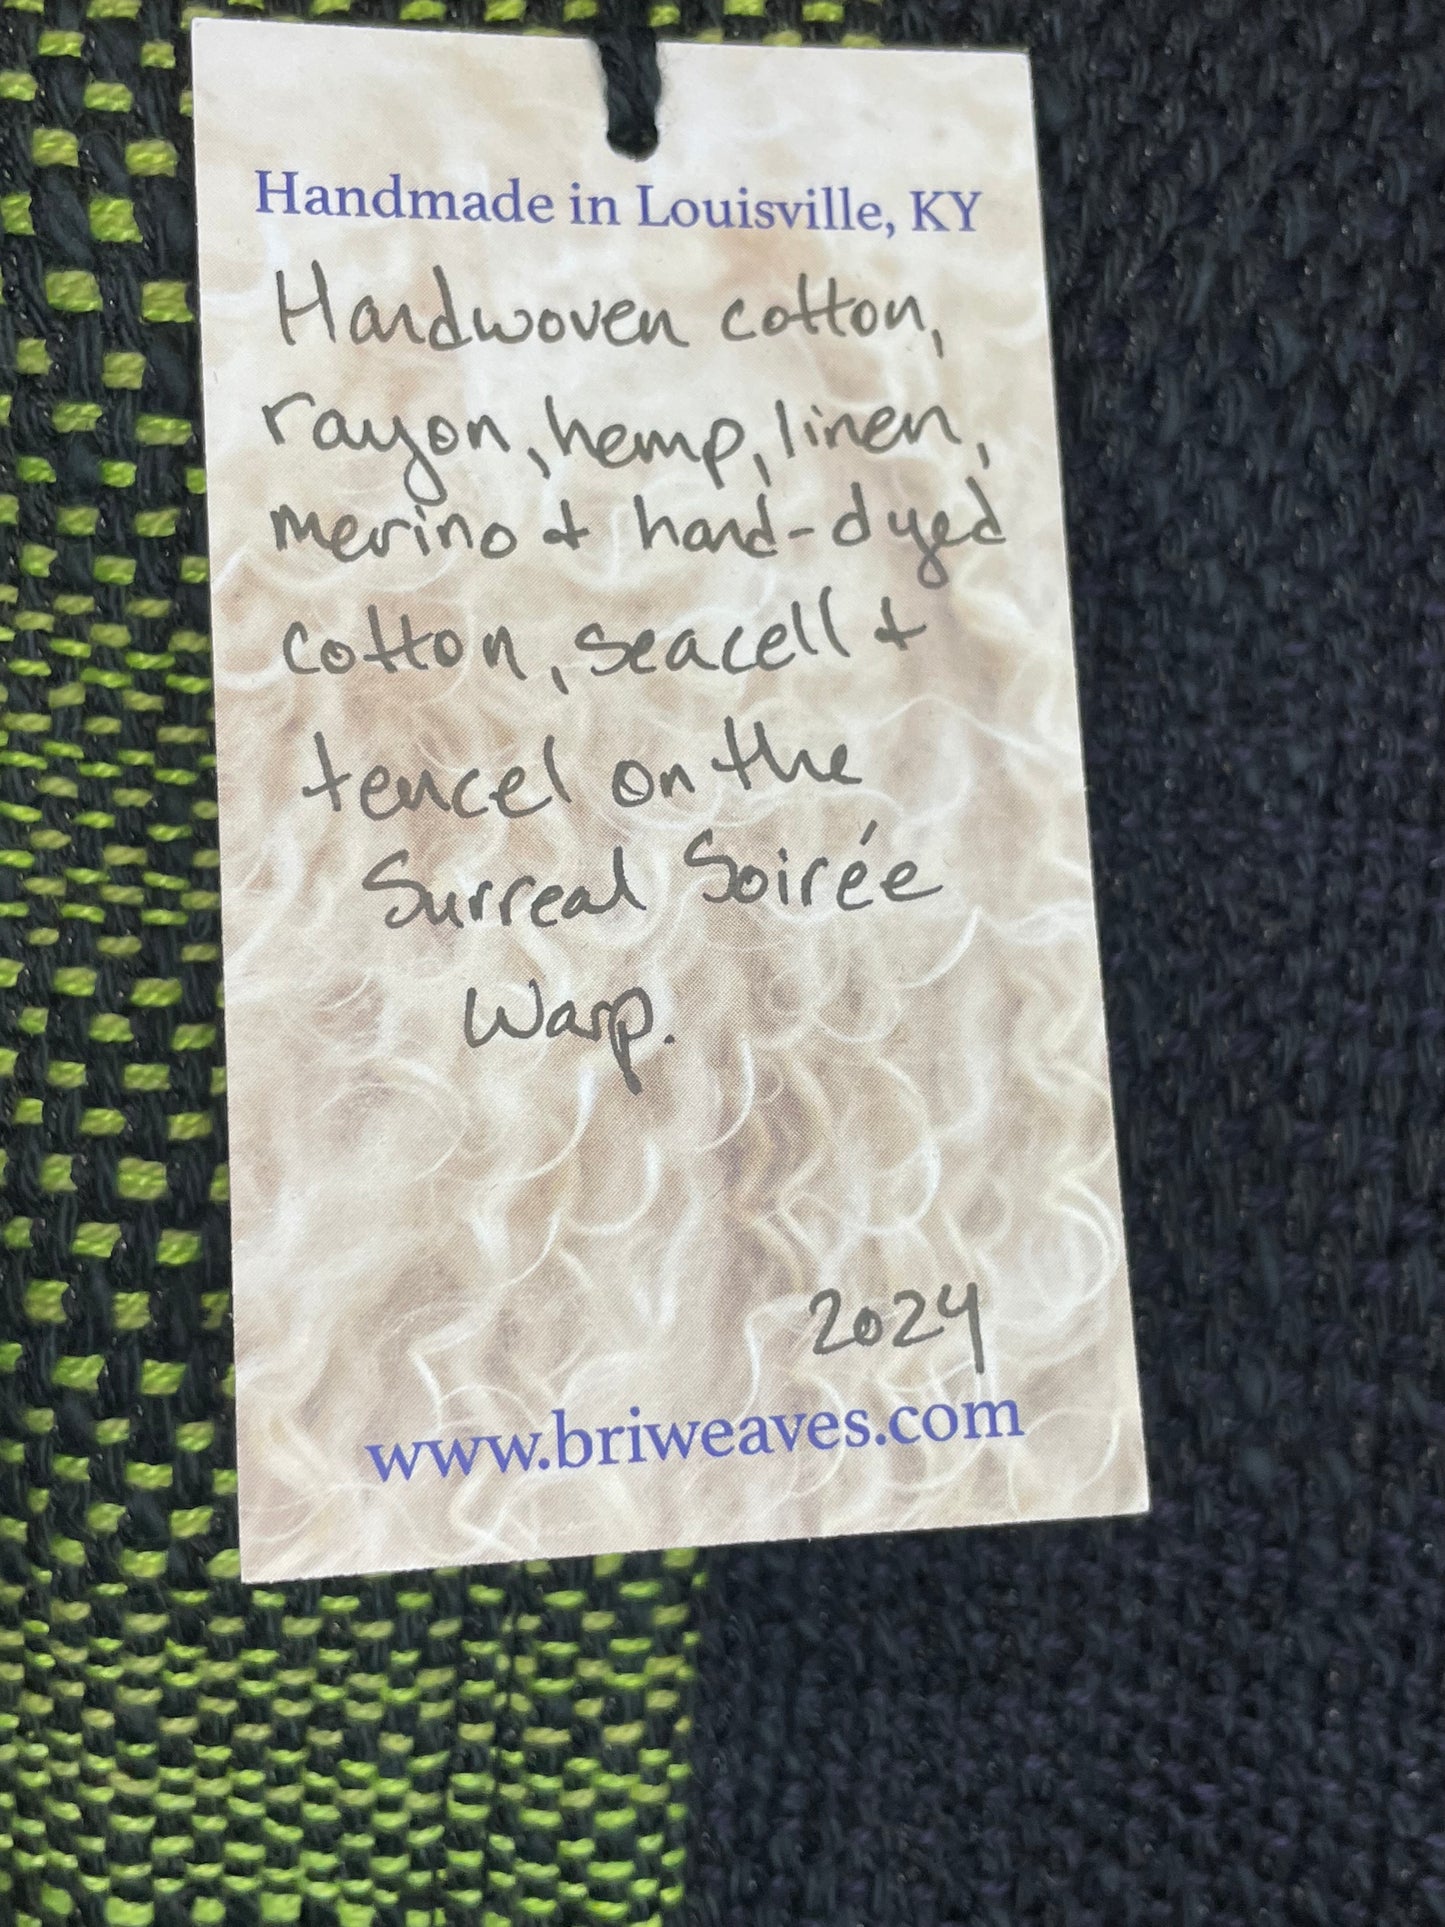 Handmade in Louisville, KY
Handwoven cotton,
rayon, hemp, linen,
merino & hand-dyed
cotton, seacell &
tencel on the
Surreal Soirée
Warp.
2024
www.briweaves.com